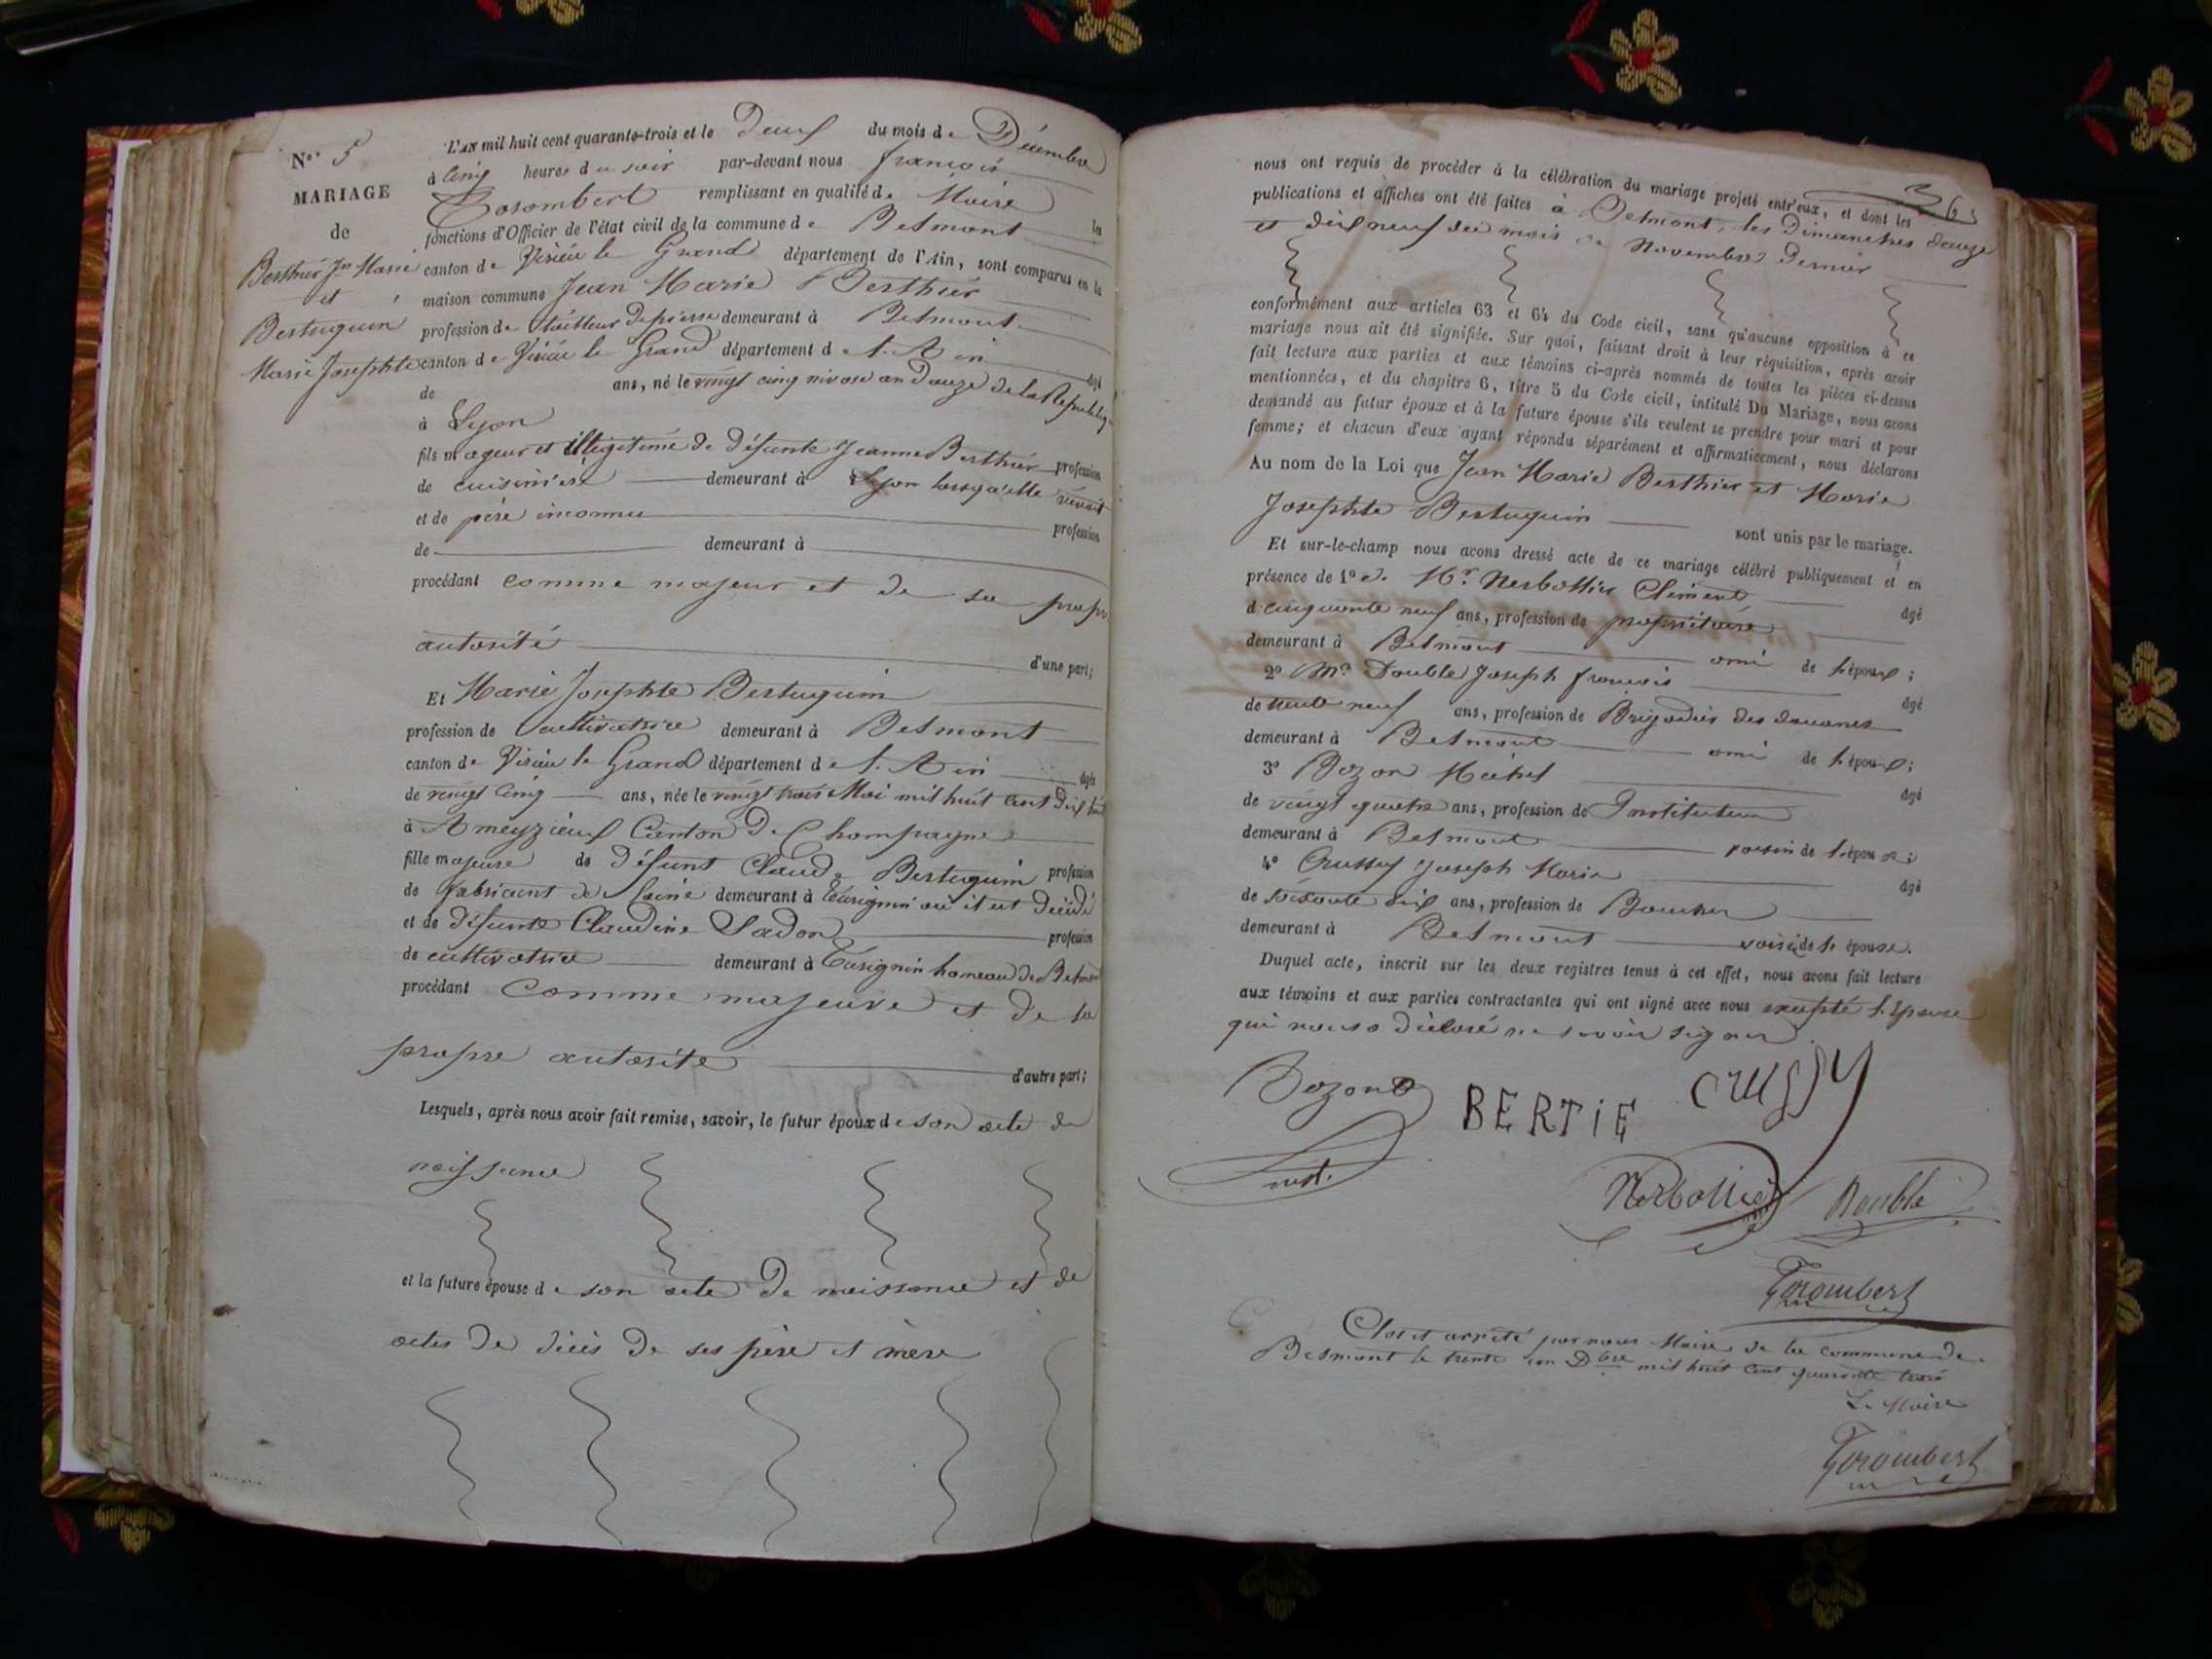 N° 5
MARIAGE
de
Berthier Jn Marie
et
Bertuguin
Marie Josephte
L'an mil huit cent quarante-trois et le Deux du mois de Décembre
à cinq heures du soir par-devant nous françois
Gorombert remplissant en qualité de Maire les
fonctions d'Officier de l'état civil de la commune de Belmont
canton de Virieu le Grand département de l'Ain, sont comparus en la
maison commune Jean Marie Berthier
profession de tailleur de pierre demeurant à Belmont
canton de Virieu le Grand département de l'Ain âgé
de ans, né le vingt cinq nivose an Douze de la Républiq.
à Lyon
fils mageur et illégitime de Défunte Jeanne Berthier profession
de cuisinière demeurant à Lyon lorsqu'elle vivait
et de père inconnu profession
de demeurant à
procédant comme majeur et de sa propre
autorité d'une part;
Et Marie Josephte Bertuguin
profession de Cultivatrice demeurant à Belmont
canton de Virieu le Grand département de l'Ain âgée
de vingt cinq ans, née le vingt trois Mai mil huit cent Dix huit
à Ameyzieux Canton De Champagne
fille majeure de Défunt Claude Bertuguin profession
de fabricant de demeurant à où il est Décédé
et de Défunte Claudine Sadon profession
de cultivatrice demeurant à hameau de Belmont
procédant Comme majeure et de sa
propre autorité d'autre part;
Lesquels, après nous avoir fait remise, savoir, le futur époux de son acte de
naissance
et la future épouse de son acte De naissance et de
actes De décès De ses père et mère
nous ont requis de procéder à la célébration du mariage projeté entr'eux, et dont les
publications et affiches ont été faites à Belmont, les Dimanches douze
et dix neuf du mois de Novembre Dernier
conformément aux articles 63 et 64 du Code civil, sans qu'aucune opposition à ce
mariage nous ait été signifiée. Sur quoi, faisant droit à leur réquisition, après avoir
fait lecture aux parties et aux témoins ci-après nommés de toutes les pièces ci-dessus
mentionnées, et du chapitre 6, titre 5 du Code civil, intitulé Du Mariage, nous avons
demandé au futur époux et à la future épouse s'ils veulent se prendre pour mari et pour
femme; et chacun d'eux ayant répondu séparément et affirmativement, nous déclarons
Au nom de la Loi que Jean Marie Berthier et Marie
Josephte Bertuguin sont unis par le mariage.
Et sur-le-champ nous avons dressé acte de ce mariage célébré publiquement et en
présence de 1° de Mr. Nerbollier Clément âgé
de cinquante neuf ans, profession de propriétaire
demeurant à Belmont ami de l'époux;
2° Mr. Double Joseph françois âgé
de trente neuf ans, profession de Brigadier des douanes
demeurant à Belmont ami de l'époux;
3° Bozon Michel âgé
de vingt quatre ans, profession de Instituteur
demeurant à Belmont voisin de l'épouse;
4° Crussy Joseph Marie âgé
de soixante dix ans, profession de
demeurant à Belmont voisin de l'épouse.
Duquel acte, inscrit sur les deux registres tenus à cet effet, nous avons fait lecture
aux témoins et aux parties contractantes qui ont signé avec nous excepté l'Epouse
qui nous a déclaré ne savoir signer
Bozon
inst.
BERTIE
crussy
Nerbollier
Double
Gorombert
Clos et arrêté par nous Maire de la commune de
Belmont le trente un Dbre mil huit cent quarante trois
Le Maire
Gorombert